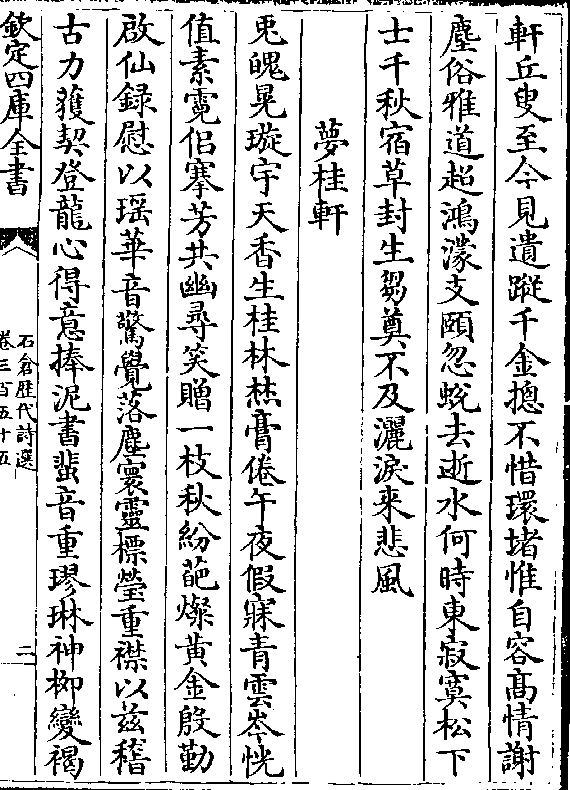 軒丘叟至今見遺蹤千金摠不惜環堵惟自容髙情謝
塵俗雅道超鴻濛支頤忽蛻去逝水何時東寂寞松下
士千秋宿草封生芻奠不及灑淚来悲風
夢桂軒
兎魄晃璇宇天香生桂林焚膏倦午夜假寐青雲岑恍
值素霓侣搴芳共幽尋笑贈一枝秋紛葩燦黄金殷勤
啟仙録慰以瑶華音驚覺落塵寰靈標瑩重襟以兹稽
古力獲契登龍心得意捧泥書蜚音重璆琳神栁變褐
欽定四庫全書
石倉歴代詩選
卷三百五十五
二